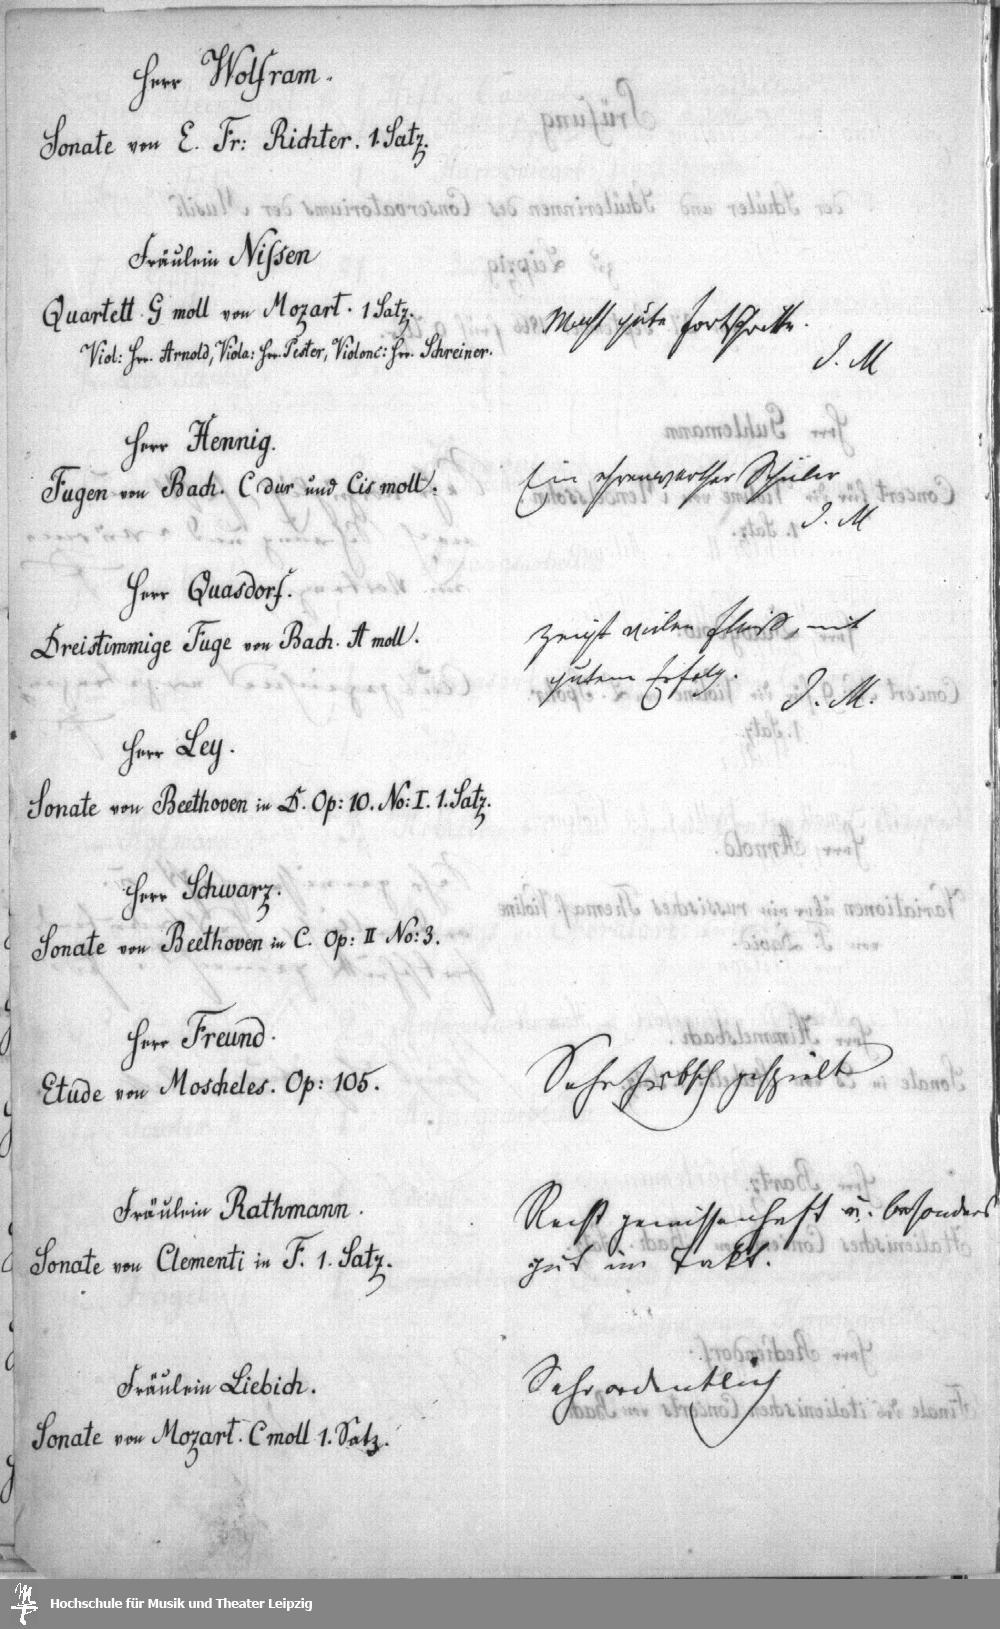 Herr Wolfram.
Sonate von E. Fr: Richter. 1. Satz.
Fräulein Nissen
Quartett G moll von Mozart. 1 Satz.
Viol: Hrr. Arnold, Viola: Hrr. Pester, Violonc: Hrr. Schreiner.
Macht gute Fortschritte.
I. M
Herr Hennig.
Fugen von Bach. C dur und Cis moll.
Ein ehrenwerther Schüler
I. M
Herr Quasdorf.
Dreistimmige Fuge von Bach. A moll.
Zeigt vielen Fleiß, mit
gutem Erfolg.
I. M.
Herr Ley.
Sonate von Beethoven in D. Op: 10. No: I. 1. Satz.
Herr Schwarz.
Sonate von Beethoven in C. Op: II No: 3.
Herr Freund.
Etude von Moscheles. Op: 105.
Sehr hübsch gespielt
Fräulein Rathmann.
Sonate von Clementi in F. 1. Satz.
Recht gewissenhaft u. besonders
gut im Takt.
Fräulein Liebich.
Sonate von Mozart. C moll 1. Satz.
Sehr ordentlich
Hochschule für Musik und Theater Leipzig